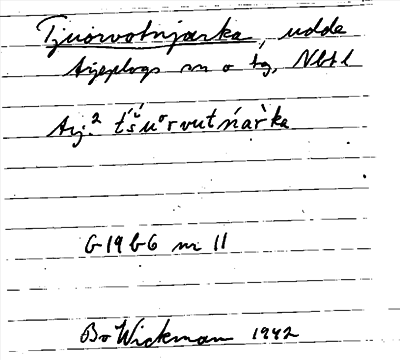 Tjuorvotnjarka, udde
Arjeplogs sn o tg, Nbtl
Arj.² t́š́uºrvutńar̀ka
G 19 b G nr 11
Bo Wickman 1942